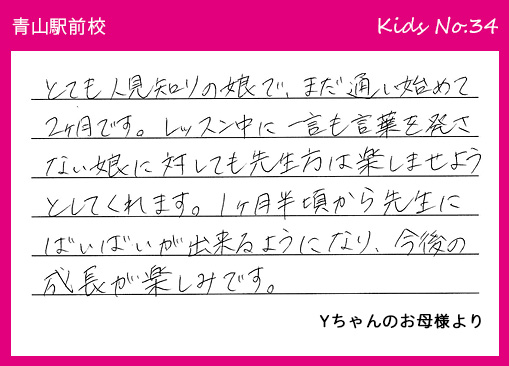 青山駅前校
Kids No.34
とても人見知りの娘で、まだ通い始めて
2ヶ月です。レッスン中に一言も言葉を発さ
ない娘に対しても先生方は楽しませよう
としてくれます。1ヶ月半頃から先生に
ばいばいが出来るようになり、今後の
成長が楽しみです。
Yちゃんのお母様より